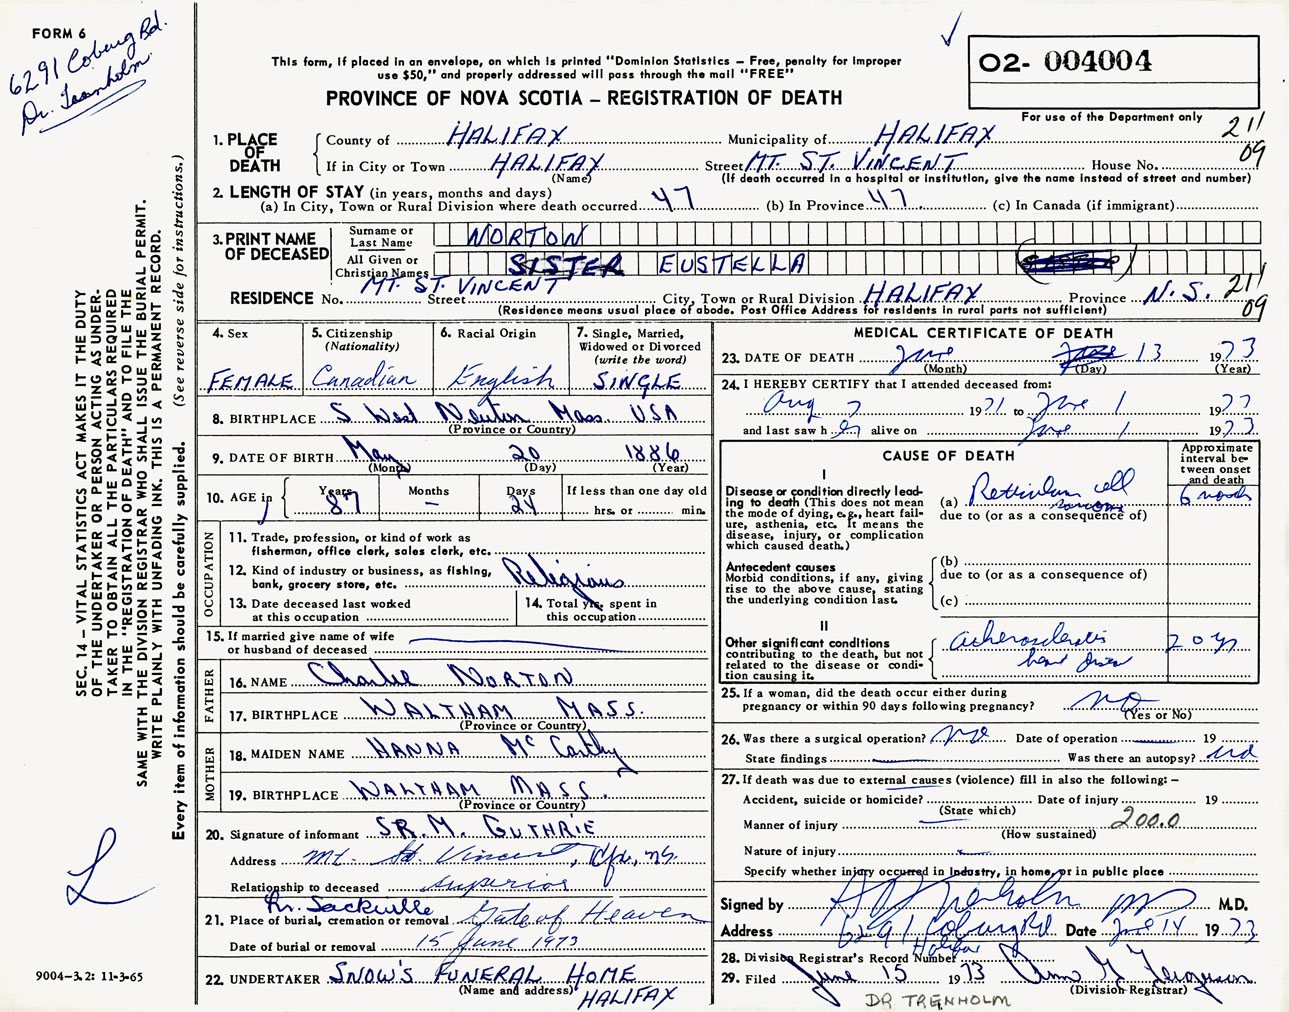 FORM 6
6291 Coburg Rd.
Dr. Trenholm
SEC. 14 – VITAL STATISTICS ACT MAKES IT THE DUTY
OF THE UNDERTAKER OR PERSON ACTING AS UNDER-
TAKER TO OBTAIN ALL THE PARTICULARS REQUIRED
IN THE "REGISTRATION OF DEATH" AND TO FILE THE
SAME WITH THE DIVISION REGISTRAR WHO SHALL ISSUE THE BURIAL PERMIT.
WRITE PLAINLY WITH UNFADING INK. THIS IS A PERMANENT RECORD.
Every item of information should be carefully supplied. (See reverse side for instructions.)
L
9004-3.2: 11-3-65
This form, if placed in an envelope, on which is printed "Dominion Statistics – Free, penalty for improper
use $50," and properly addressed will pass through the mail "FREE"
PROVINCE OF NOVA SCOTIA – REGISTRATION OF DEATH
02- 004004
For use of the Department only
211
09
1. PLACE OF DEATH County of HALIFAX Municipality of HALIFAX
If in City or Town HALIFAX Street MT. ST. VINCENT House No.
(Name) (If death occurred in a hospital or institution, give the name instead of street and number)
2. LENGTH OF STAY (in years, months and days)
(a) In City, Town or Rural Division where death occurred 47 (b) In Province 47 (c) In Canada (if immigrant)
3. PRINT NAME OF DECEASED Surname or Last Name NORTON
All Given or Christian Names SISTER EUSTELLA
RESIDENCE No. MT. ST. VINCENT Street City, Town or Rural Division HALIFAX Province N.S. 211
09
(Residence means usual place of abode. Post Office Address for residents in rural parts not sufficient)
4. Sex FEMALE
5. Citizenship (Nationality) Canadian
6. Racial Origin English
7. Single, Married, Widowed or Divorced (write the word) SINGLE
8. BIRTHPLACE S West Newton Mass. USA
(Province or Country)
9. DATE OF BIRTH May 20 1886
(Month) (Day) (Year)
10. AGE in Years 87 Months – Days 24 If less than one day old hrs. or min.
OCCUPATION
11. Trade, profession, or kind of work as
fisherman, office clerk, sales clerk, etc.
12. Kind of industry or business, as fishing,
bank, grocery store, etc. Religious
13. Date deceased last worked
at this occupation
14. Total yrs. spent in
this occupation
15. If married give name of wife
or husband of deceased
FATHER
16. NAME Charlie NORTON
17. BIRTHPLACE WALTHAM MASS.
(Province or Country)
MOTHER
18. MAIDEN NAME HANNA McCarthy
19. BIRTHPLACE WALTHAM MASS.
(Province or Country)
20. Signature of informant SR. M. GUTHRIE
Address Mt. St. Vincent, Hfx., N.S.
Relationship to deceased superior
Lr. Sackville
21. Place of burial, cremation or removal Gate of Heaven
Date of burial or removal 15 June 1973
22. UNDERTAKER SNOW'S FUNERAL HOME
(Name and address) HALIFAX
MEDICAL CERTIFICATE OF DEATH
23. DATE OF DEATH June 13 1973
(Month) (Day) (Year)
24. I HEREBY CERTIFY that I attended deceased from:
Aug 7 1971 to June 1 1973
and last saw her alive on June 1 1973
CAUSE OF DEATH
Approximate interval between onset and death
I
Disease or condition directly lead-
ing to death (This does not mean
the mode of dying, e.g., heart fail-
ure, asthenia, etc. It means the
disease, injury, or complication
which caused death.)
(a) Reticulum cell sarcoma 6 months
due to (or as a consequence of)
Antecedent causes
Morbid conditions, if any, giving
rise to the above cause, stating
the underlying condition last.
(b)
due to (or as a consequence of)
(c)
II
Other significant conditions
contributing to the death, but not
related to the disease or condi-
tion causing it.
atherosclerotic 20 yrs
heart disease
25. If a woman, did the death occur either during
pregnancy or within 90 days following pregnancy? no
(Yes or No)
26. Was there a surgical operation? no Date of operation 19
State findings Was there an autopsy? no
27. If death was due to external causes (violence) fill in also the following: –
Accident, suicide or homicide? Date of injury 19
(State which)
Manner of injury 200.0
(How sustained)
Nature of injury
Specify whether injury occurred in industry, in home, or in public place
Signed by Trenholm MD M.D.
Address 6291 Coburg Rd Date June 14 1973
Halifax
28. Division Registrar's Record Number
29. Filed June 15 1973 Ann G Ferguson
(Division Registrar)
DR TRENHOLM